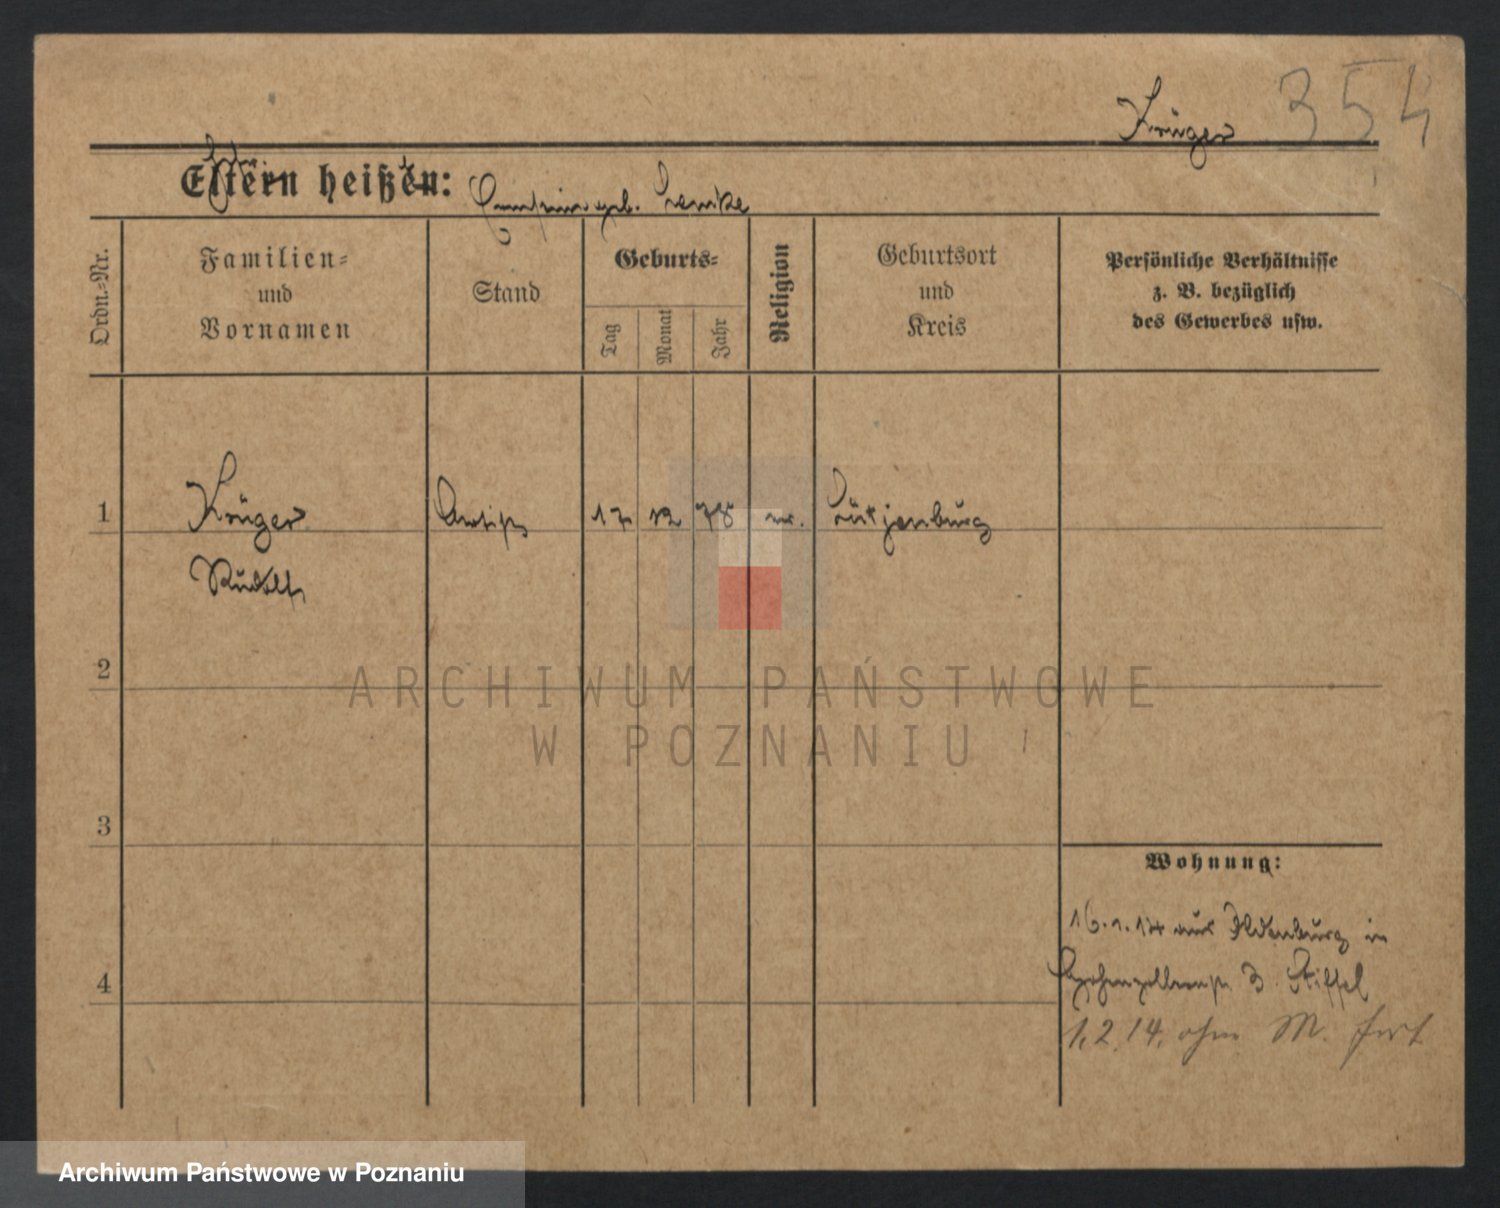 Krüger 354
Eltern heißen:
geb.
Ordn.-Nr.
Familien-
und
Vornamen
Stand
Geburts-
Tag
Monat
Jahr
Religion
Geburtsort
und
Kreis
Persönliche Verhältnisse
z. B. bezüglich
des Gewerbes usw.
1 Krüger Artist 17 12 78 ev. Lütjenburg
Rudolf
2
3
4
ARCHIWUM PAŃSTWOWE
W POZNANIU
Wohnung:
16.1.14 aus Oldenburg in
Hohenzollernstr. 3 Stiffel
1.2.14. ohne M. fort
Archiwum Państwowe w Poznaniu